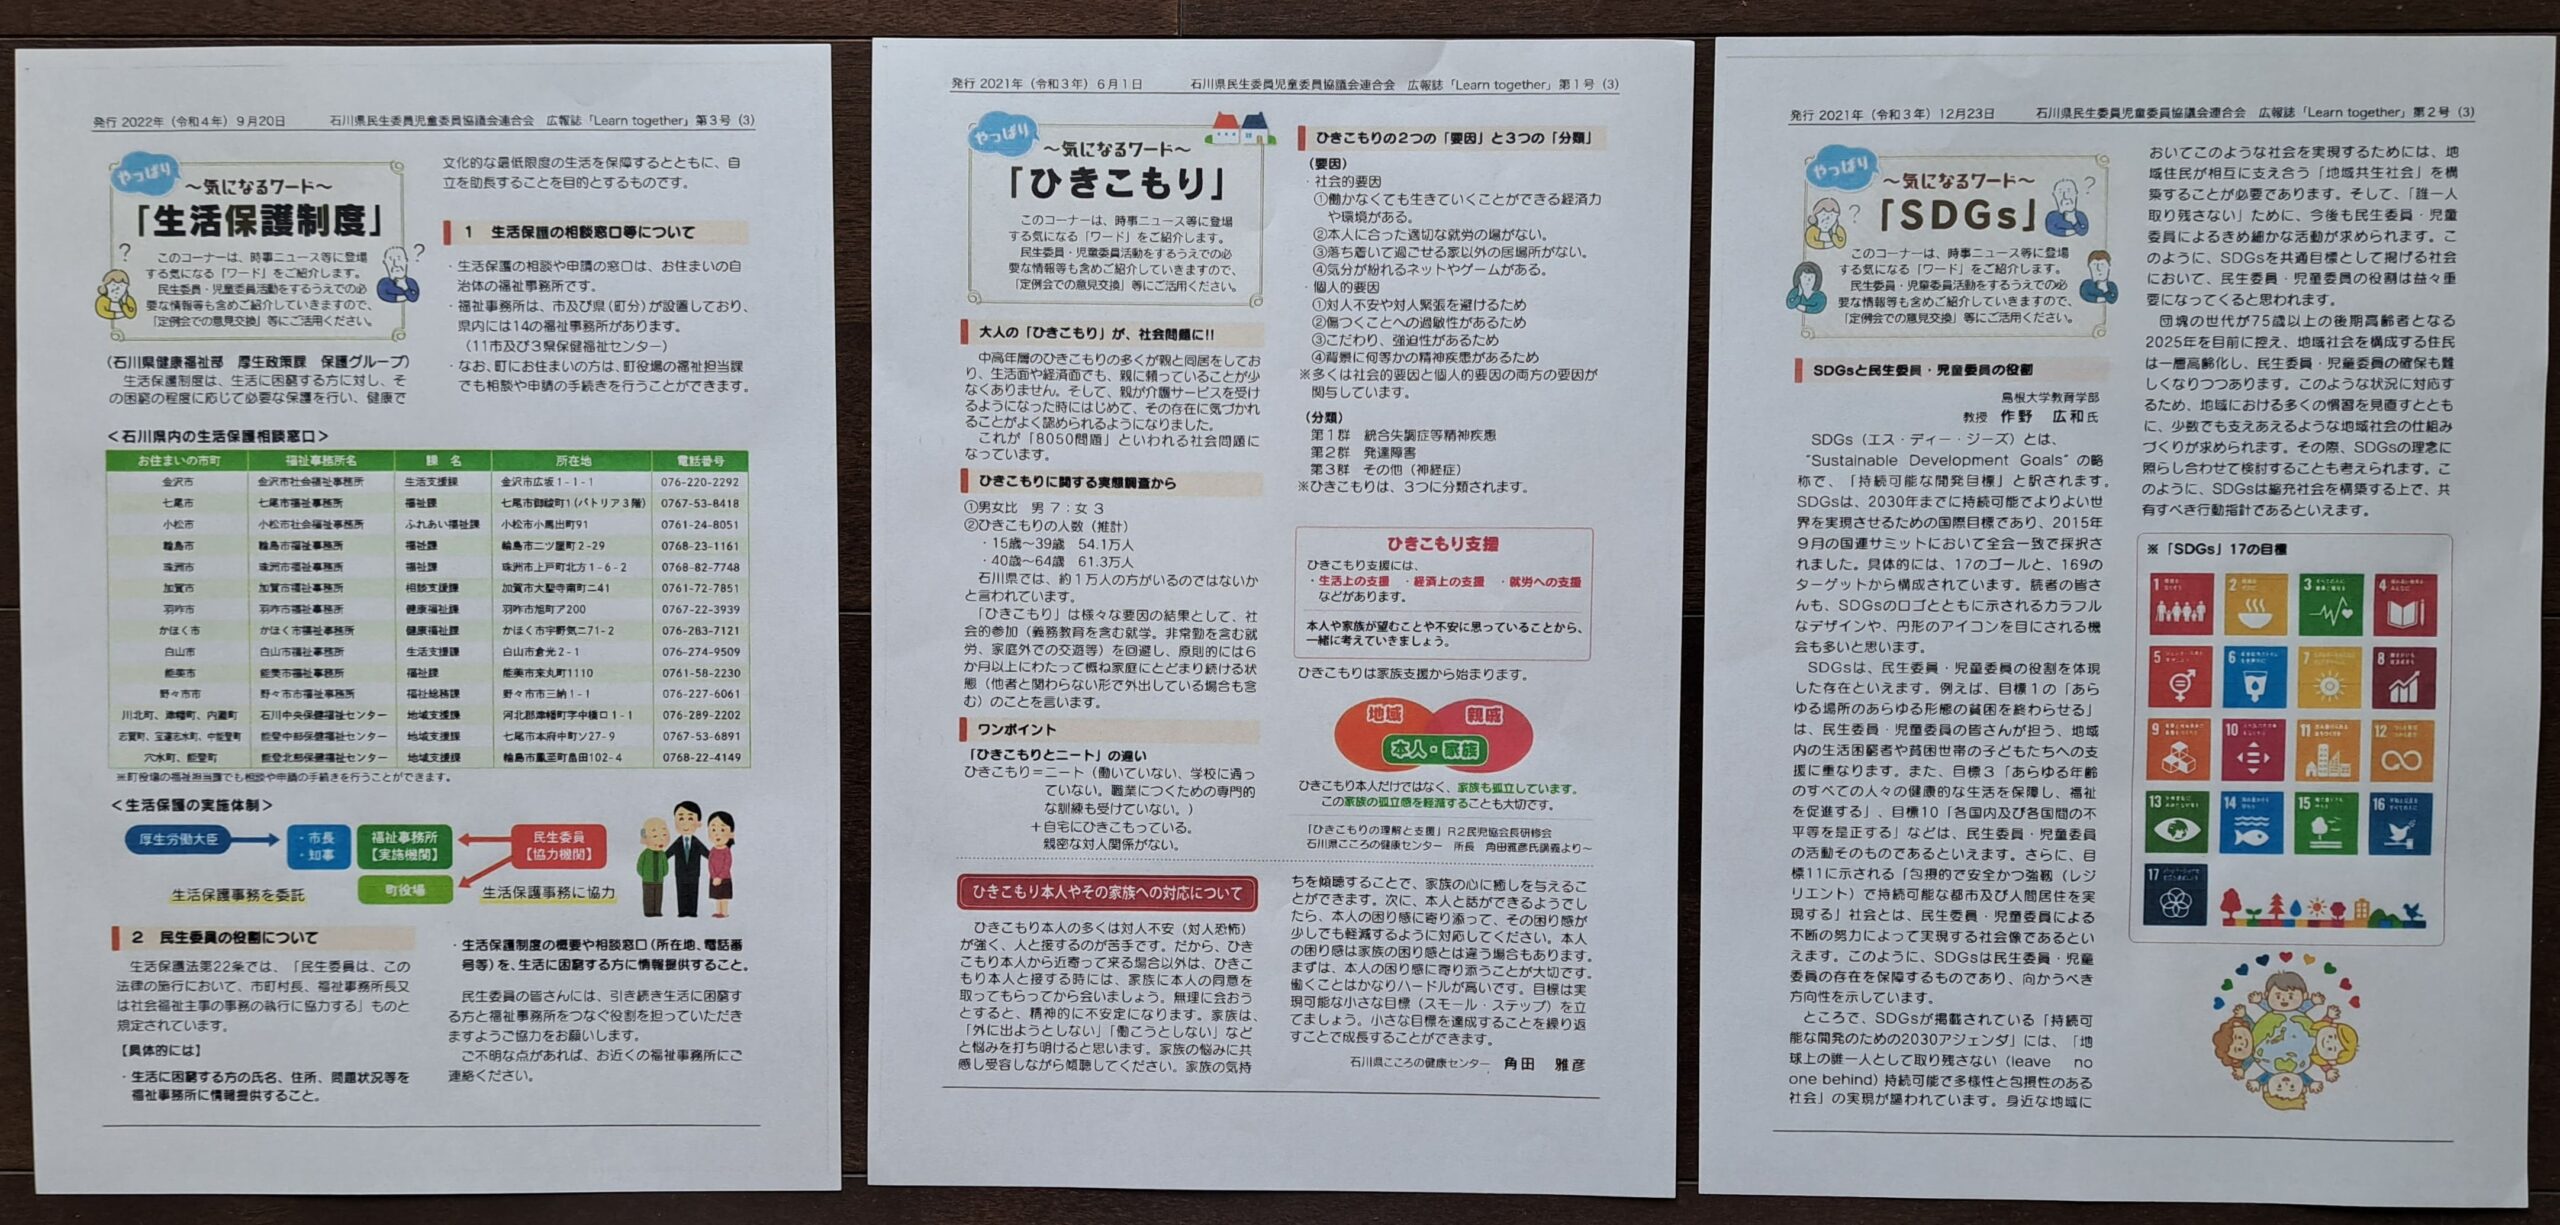 発行 2022年（令和4年）9月20日　石川県民生委員児童委員協議会連合会　広報誌「Learn together」第3号（3）
やっぱり
～気になるワード～
「生活保護制度」
このコーナーは、時事ニュース等に登場
する気になる「ワード」をご紹介します。
民生委員・児童委員活動をするうえでの必
要な情報等も含めご紹介していきますので、
「定例会での意見交換」等にご活用ください。
（石川県健康福祉部　厚生政策課　保護グループ）
生活保護制度は、生活に困窮する方に対し、そ
の困窮の程度に応じて必要な保護を行い、健康で
文化的な最低限度の生活を保障するとともに、自
立を助長することを目的とするものです。
1　生活保護の相談窓口等について
・生活保護の相談や申請の窓口は、お住まいの自
治体の福祉事務所です。
・福祉事務所は、市及び県（町分）が設置しており、
県内には14の福祉事務所があります。
（11市及び3県保健福祉センター）
・なお、町にお住まいの方は、町役場の福祉担当課
でも相談や申請の手続きを行うことができます。
＜石川県内の生活保護相談窓口＞
お住まいの市町　福祉事務所名　課　名　所在地　電話番号
金沢市　金沢市社会福祉事務所　生活支援課　金沢市広坂1-1-1　076-220-2292
七尾市　七尾市福祉事務所　福祉課　七尾市御祓町1（パトリア3階）　0767-53-8418
小松市　小松市社会福祉事務所　ふれあい福祉課　小松市小馬出町91　0761-24-8051
輪島市　輪島市福祉事務所　福祉課　輪島市二ツ屋町2-29　0768-23-1161
珠洲市　珠洲市福祉事務所　福祉課　珠洲市上戸町北方1-6-2　0768-82-7748
加賀市　加賀市福祉事務所　相談支援課　加賀市大聖寺南町ニ41　0761-72-7851
羽咋市　羽咋市福祉事務所　健康福祉課　羽咋市旭町ア200　0767-22-3939
かほく市　かほく市福祉事務所　健康福祉課　かほく市宇野気ニ71-2　076-283-7121
白山市　白山市福祉事務所　生活支援課　白山市倉光2-1　076-274-9509
能美市　能美市福祉事務所　福祉課　能美市来丸町1110　0761-58-2230
野々市市　野々市市福祉事務所　福祉総務課　野々市市三納1-1　076-227-6061
川北町、津幡町、内灘町　石川中央保健福祉センター　地域支援課　河北郡津幡町字中橋ロ1-1　076-289-2202
志賀町、宝達志水町、中能登町　能登中部保健福祉センター　地域支援課　七尾市本府中町ソ27-9　0767-53-6891
穴水町、能登町　能登北部保健福祉センター　地域支援課　輪島市鳳至町畠田102-4　0768-22-4149
※町役場の福祉担当課でも相談や申請の手続きを行うことができます。
＜生活保護の実施体制＞
厚生労働大臣
・市長
・知事
福祉事務所
【実施機関】
民生委員
【協力機関】
町役場
生活保護事務を委託
生活保護事務に協力
2　民生委員の役割について
生活保護法第22条では、「民生委員は、この
法律の施行において、市町村長、福祉事務所長又
は社会福祉主事の事務の執行に協力する」ものと
規定されています。
【具体的には】
・生活に困窮する方の氏名、住所、問題状況等を
福祉事務所に情報提供すること。
・生活保護制度の概要や相談窓口（所在地、電話番
号等）を、生活に困窮する方に情報提供すること。
民生委員の皆さんには、引き続き生活に困窮す
る方と福祉事務所をつなぐ役割を担っていただき
ますようご協力をお願いします。
ご不明な点があれば、お近くの福祉事務所にご
連絡ください。
発行 2021年（令和3年）6月1日　石川県民生委員児童委員協議会連合会　広報誌「Learn together」第1号（3）
やっぱり
～気になるワード～
「ひきこもり」
このコーナーは、時事ニュース等に登場
する気になる「ワード」をご紹介します。
民生委員・児童委員活動をするうえでの必
要な情報等も含めご紹介していきますので、
「定例会での意見交換」等にご活用ください。
大人の「ひきこもり」が、社会問題に!!
中高年層のひきこもりの多くが親と同居をしてお
り、生活面や経済面でも、親に頼っていることが少
なくありません。そして、親が介護サービスを受け
るようになった時にはじめて、その存在に気づかれ
ることがよく認められるようになりました。
これが「8050問題」といわれる社会問題に
なっています。
ひきこもりに関する実態調査から
①男女比　男7：女3
②ひきこもりの人数（推計）
・15歳～39歳　54.1万人
・40歳～64歳　61.3万人
石川県では、約1万人の方がいるのではないか
と言われています。
「ひきこもり」は様々な要因の結果として、社
会的参加（義務教育を含む就学。非常勤を含む就
労、家庭外での交遊等）を回避し、原則的には6
か月以上にわたって概ね家庭にとどまり続ける状
態（他者と関わらない形で外出している場合も含
む）のことを言います。
ワンポイント
「ひきこもりとニート」の違い
ひきこもり＝ニート（働いていない、学校に通っ
ていない。職業につくための専門的
な訓練も受けていない。）
＋自宅にひきこもっている。
親密な対人関係がない。
ひきこもりの2つの「要因」と3つの「分類」
（要因）
・社会的要因
①働かなくても生きていくことができる経済力
や環境がある。
②本人に合った適切な就労の場がない。
③落ち着いて過ごせる家以外の居場所がない。
④気分が紛れるネットやゲームがある。
・個人的要因
①対人不安や対人緊張を避けるため
②傷つくことへの過敏性があるため
③こだわり、強迫性があるため
④背景に何等かの精神疾患があるため
※多くは社会的要因と個人的要因の両方の要因が
関与しています。
（分類）
第1群　統合失調症等精神疾患
第2群　発達障害
第3群　その他（神経症）
※ひきこもりは、3つに分類されます。
ひきこもり支援
ひきこもり支援には、
・生活上の支援　・経済上の支援　・就労への支援
などがあります。
本人や家族が望むことや不安に思っていることから、
一緒に考えていきましょう。
ひきこもりは家族支援から始まります。
地域
親戚
本人・家族
ひきこもり本人だけではなく、家族も孤立しています。
この家族の孤立感を軽減することも大切です。
「ひきこもりの理解と支援」R2民児協会長研修会
石川県こころの健康センター　所長　角田雅彦氏講義より～
ひきこもり本人やその家族への対応について
ひきこもり本人の多くは対人不安（対人恐怖）
が強く、人と接するのが苦手です。だから、ひき
こもり本人から近寄って来る場合以外は、ひきこ
もり本人と接する時には、家族に本人の同意を
取ってもらってから会いましょう。無理に会おう
とすると、精神的に不安定になります。家族は、
「外に出ようとしない」「働こうとしない」など
と悩みを打ち明けると思います。家族の悩みに共
感し受容しながら傾聴してください。家族の気持
ちを傾聴することで、家族の心に癒しを与えるこ
とができます。次に、本人と話ができるようでし
たら、本人の困り感に寄り添って、その困り感が
少しでも軽減するように対応してください。本人
の困り感は家族の困り感とは違う場合もあります。
まずは、本人の困り感に寄り添うことが大切です。
働くことはかなりハードルが高いです。目標は実
現可能な小さな目標（スモール・ステップ）を立
てましょう。小さな目標を達成することを繰り返
すことで成長することができます。
石川県こころの健康センター　角田　雅彦
発行 2021年（令和3年）12月23日　石川県民生委員児童委員協議会連合会　広報誌「Learn together」第2号（3）
やっぱり
～気になるワード～
「SDGs」
このコーナーは、時事ニュース等に登場
する気になる「ワード」をご紹介します。
民生委員・児童委員活動をするうえでの必
要な情報等も含めご紹介していきますので、
「定例会での意見交換」等にご活用ください。
SDGsと民生委員・児童委員の役割
島根大学教育学部
教授　作野　広和氏
SDGs（エス・ディー・ジーズ）とは、
“Sustainable Development Goals” の略
称で、「持続可能な開発目標」と訳されます。
SDGsは、2030年までに持続可能でよりよい世
界を実現させるための国際目標であり、2015年
9月の国連サミットにおいて全会一致で採択さ
れました。具体的には、17のゴールと、169の
ターゲットから構成されています。読者の皆さ
んも、SDGsのロゴとともに示されるカラフル
なデザインや、円形のアイコンを目にされる機
会も多いと思います。
SDGsは、民生委員・児童委員の役割を体現
した存在といえます。例えば、目標1の「あら
ゆる場所のあらゆる形態の貧困を終わらせる」
は、民生委員・児童委員の皆さんが担う、地域
内の生活困窮者や貧困世帯の子どもたちへの支
援に重なります。また、目標3「あらゆる年齢
のすべての人々の健康的な生活を保障し、福祉
を促進する」、目標10「各国内及び各国間の不
平等を是正する」などは、民生委員・児童委員
の活動そのものであるといえます。さらに、目
標11に示される「包摂的で安全かつ強靱（レジ
リエント）で持続可能な都市及び人間居住を実
現する」社会とは、民生委員・児童委員による
不断の努力によって実現する社会像であるとい
えます。このように、SDGsは民生委員・児童
委員の存在を保障するものであり、向かうべき
方向性を示しています。
ところで、SDGsが掲載されている「持続可
能な開発のための2030アジェンダ」には、「地
球上の誰一人として取り残さない（leave no
one behind）持続可能で多様性と包摂性のある
社会」の実現が謳われています。身近な地域に
おいてこのような社会を実現するためには、地
域住民が相互に支え合う「地域共生社会」を構
築することが必要であります。そして、「誰一人
取り残さない」ために、今後も民生委員・児童
委員によるきめ細かな活動が求められます。こ
のように、SDGsを共通目標として掲げる社会
において、民生委員・児童委員の役割は益々重
要になってくると思われます。
団塊の世代が75歳以上の後期高齢者となる
2025年を目前に控え、地域社会を構成する住民
は一層高齢化し、民生委員・児童委員の確保も難
しくなりつつあります。このような状況に対応す
るため、地域における多くの慣習を見直すととも
に、少数でも支えあえるような地域社会の仕組み
づくりが求められます。その際、SDGsの理念に
照らし合わせて検討することも考えられます。こ
のように、SDGsは縮充社会を構築する上で、共
有すべき行動指針であるといえます。
※「SDGs」17の目標
1
2
3
4
5
6
7
8
9
10
11
12
13
14
15
16
17